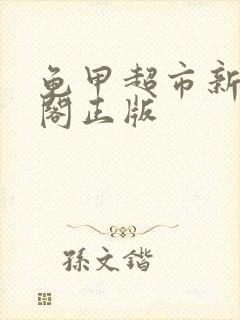 龟甲超市新
阁正版
孫文鍇